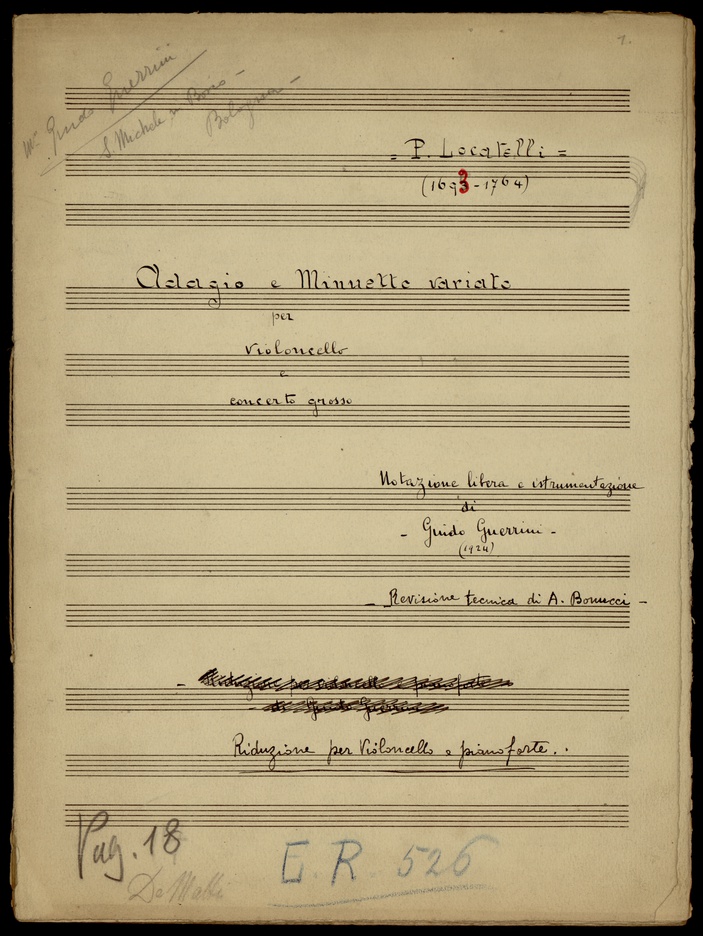 1.
Mº Guido Guerrini
S. Michele in Bosco -
Bologna -
= P. Locatelli =
(1693-1764)
Adagio e Minuetto variato
per
violoncello
e
concerto grosso
Notazione libera e istrumentazione
di
- Guido Guerrini -
(1924)
- Revisione tecnica di A. Bonucci -
- di Guido Guerrini
Riduzione per Violoncello e pianoforte..
Pag. 18
E.R. 526